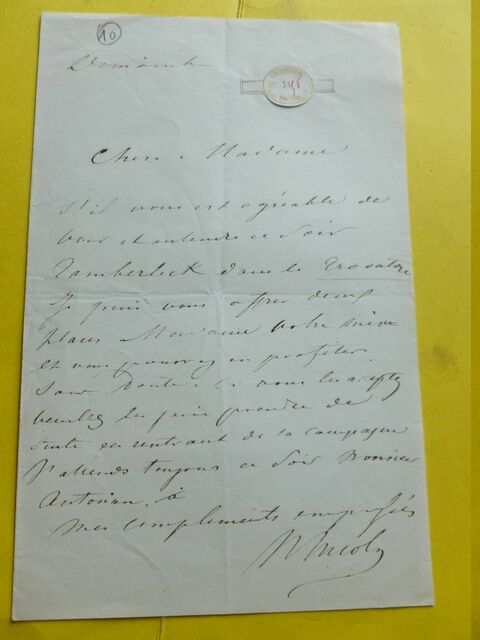 10
Dimanche
COLLECTION
Chère Madame
S'il vous est agréable de
voir et entendre ce soir
Tamberlick dans le Trovatore
Je puis vous offrir deux
places Madame votre mère
et vous pourrez en profiter
sans doute. Si vous les acceptez
veuillez les faire prendre de
suite en rentrant de la campagne
J'attends toujours ce soir Monsieur
à
Mes compliments empressés